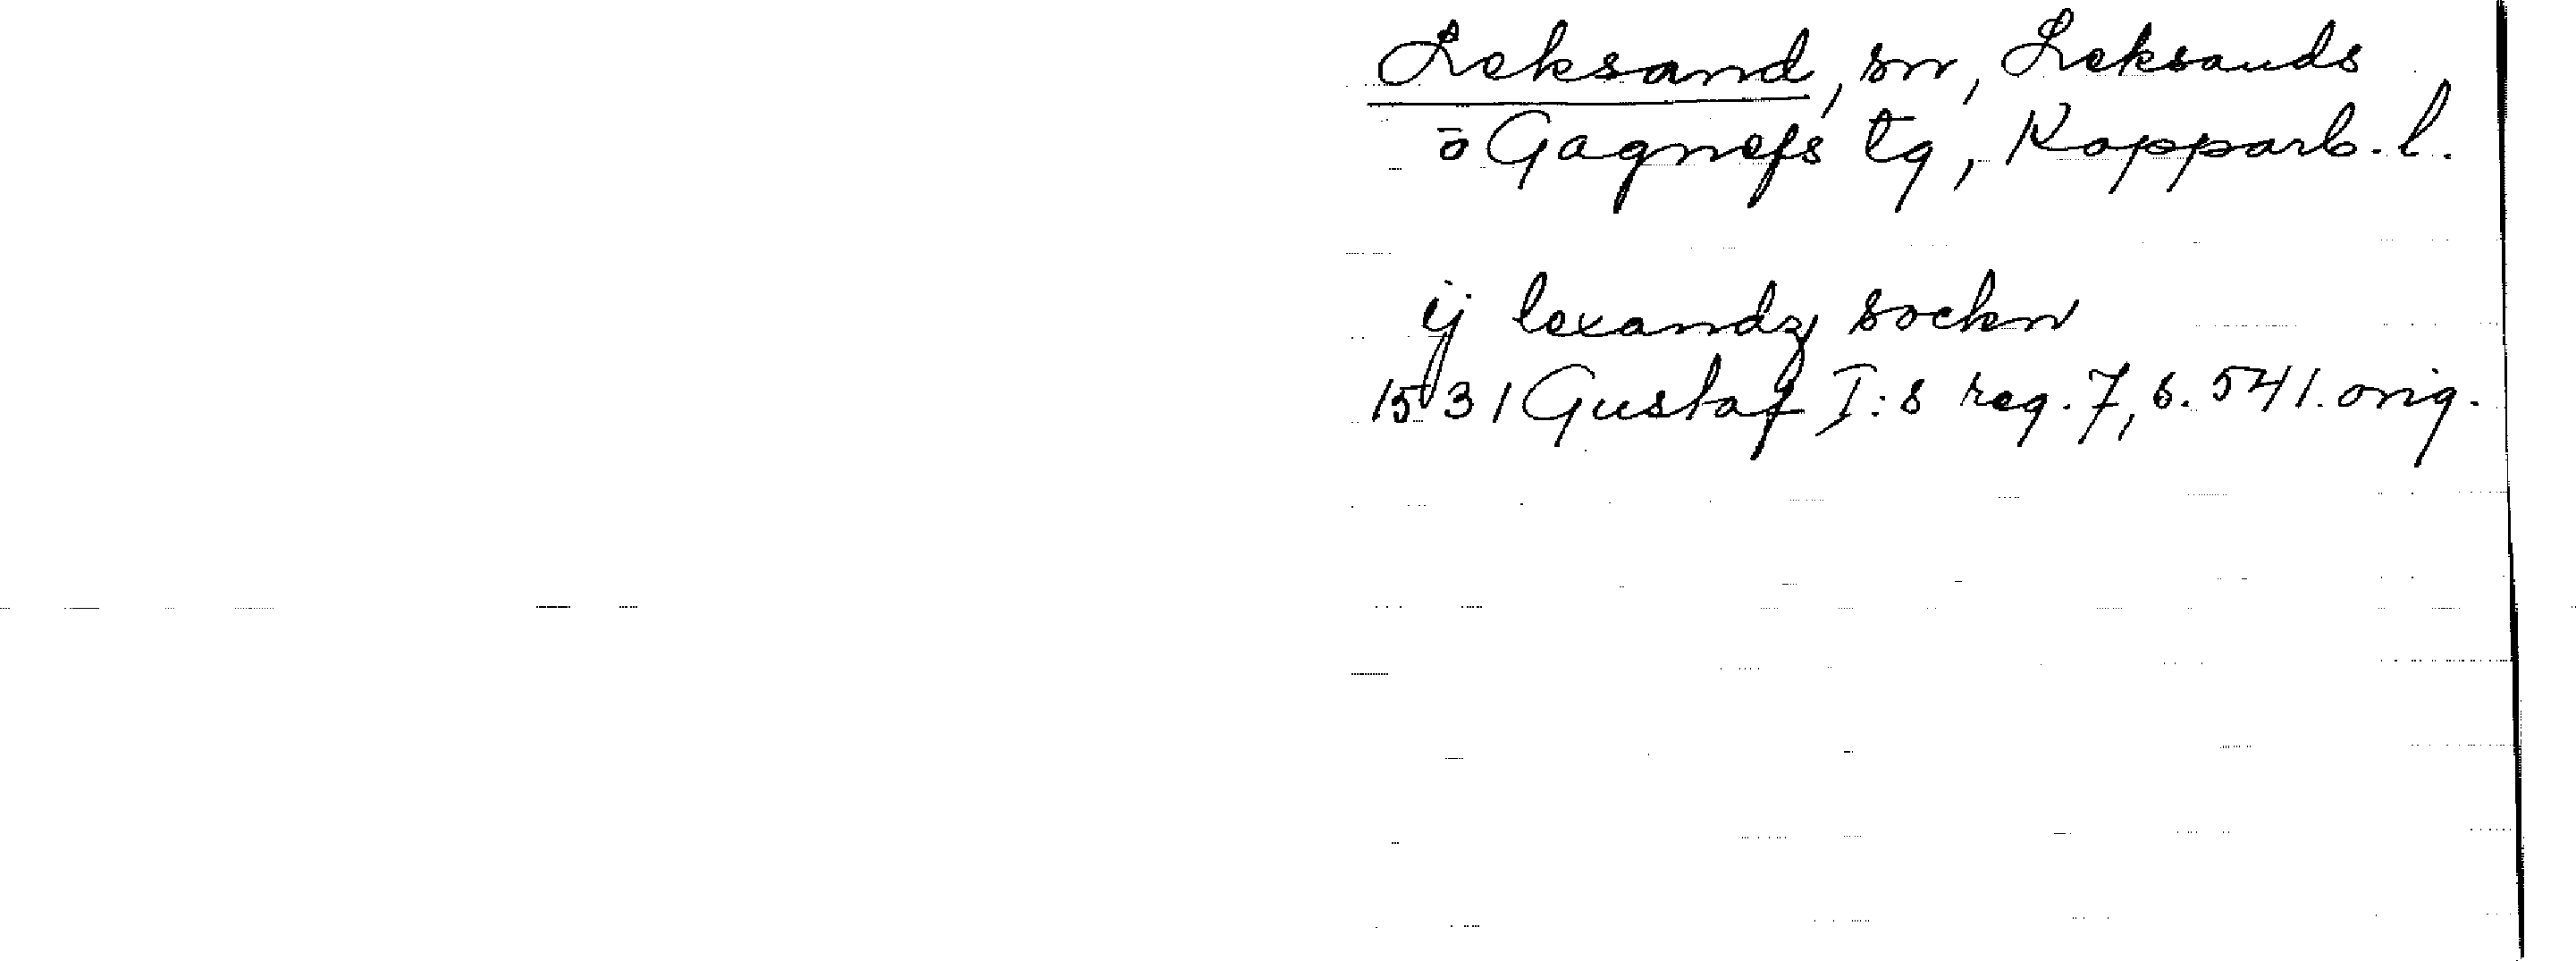 Leksand, sn, Leksands
o Gagnefs tg, Kopparb. l.
ij lexandz sockn
1531 Gustaf I:s reg. 7, s. 541. orig.